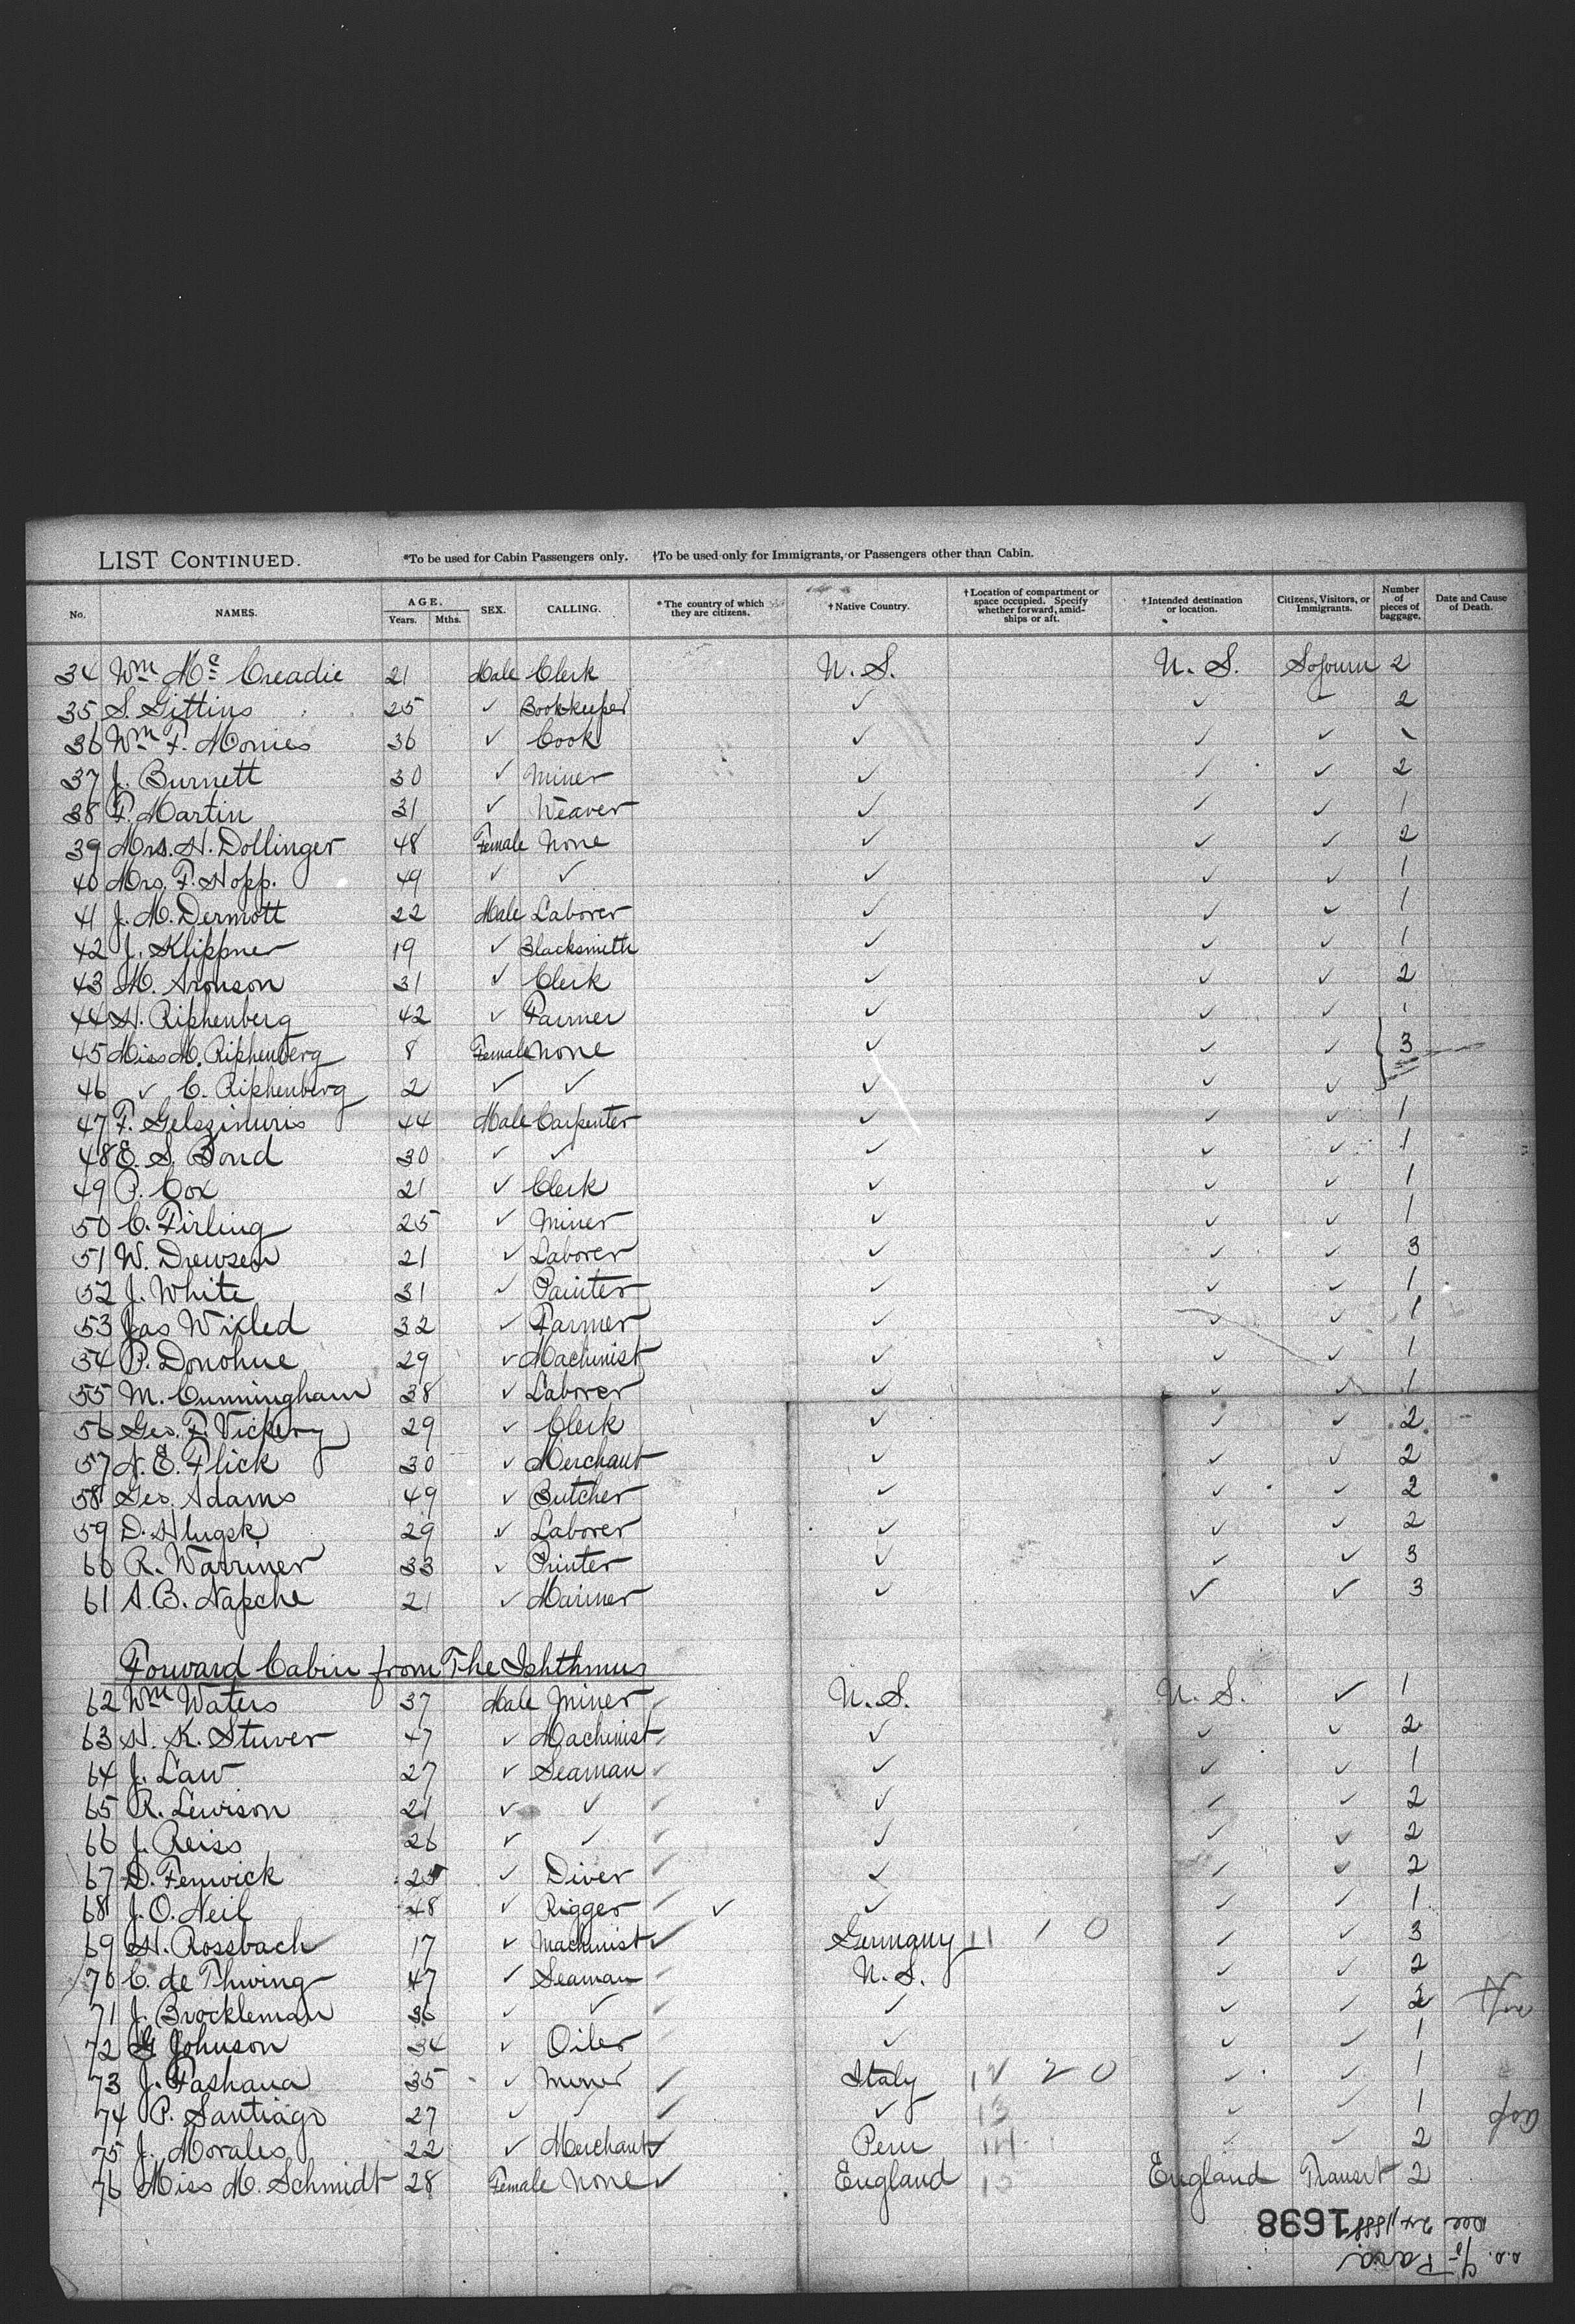 LIST CONTINUED. *To be used for Cabin Passengers only. †To be used only for Immigrants, or Passengers other than Cabin.
No. NAMES. AGE. Years. Mths. SEX. CALLING. *The country of which they are citizens. †Native Country. †Location of compartment or space occupied. Specify whether forward, amidships or aft. †Intended destination or location. Citizens, Visitors, or Immigrants. Number of pieces of baggage. Date and Cause of Death.
34 Wm Mc Creadie 21 Male Clerk U.S. U.S. Sojourn 2
35 S. Gittins 25 ✓ Bookkeeper ✓ ✓ ✓ 2
36 Wm F. Monies 36 ✓ Cook ✓ ✓ ✓
37 J. Burnett 30 ✓ Miner ✓ ✓ ✓ 2
38 F. Martin 31 ✓ Weaver ✓ ✓ ✓ 1
39 Mrs. H. Dollinger 48 Female None ✓ ✓ ✓ 2
40 Mrs. F. Hopp. 49 ✓ ✓ ✓ ✓ ✓ 1
41 J. M. Dermott 22 Male Laborer ✓ ✓ ✓ 1
42 J. Klippner 19 ✓ Blacksmith ✓ ✓ ✓ 1
43 M. Aronson 31 ✓ Clerk ✓ ✓ ✓ 2
44 H. Riphenberg 42 ✓ Farmer ✓ ✓ ✓
45 Miss M. Riphenberg 8 Female None ✓ ✓ ✓ 3
46 ✓ C. Riphenberg 2 ✓ ✓ ✓ ✓ ✓
47 F. Gelszinuris 44 Male Carpenter ✓ ✓ ✓ 1
48 E. S. Bond 30 ✓ ✓ ✓ ✓ ✓ 1
49 P. Cox 21 ✓ Clerk ✓ ✓ ✓ 1
50 C. Firling 25 ✓ Miner ✓ ✓ ✓ 1
51 W. Drewsen 21 ✓ Laborer ✓ ✓ ✓ 3
52 J. White 31 ✓ Painter ✓ ✓ ✓ 1
53 Jas Wixled 32 ✓ Farmer ✓ ✓ ✓ 1
54 P. Donohue 29 ✓ Machinist ✓ ✓ ✓ 1
55 M. Cunningham 38 ✓ Laborer ✓ ✓ ✓ 1
56 Geo. F. Vickery 29 ✓ Clerk ✓ ✓ ✓ 2
57 N. E. Flick 30 ✓ Merchant ✓ ✓ ✓ 2
58 Geo. Adams 49 ✓ Butcher ✓ ✓ ✓ 2
59 D. Hlugsk 29 ✓ Laborer ✓ ✓ ✓ 2
60 R. Warriner 33 ✓ Printer ✓ ✓ ✓ 3
61 A. B. Napche 21 ✓ Mariner ✓ ✓ ✓ 3
Forward Cabin from The Ishthmus
62 Wm Waters 37 Male Miner U.S. U.S. ✓ 1
63 H. K. Stuver 47 ✓ Machinist ✓ ✓ ✓ 2
64 J. Law 27 ✓ Seaman ✓ ✓ ✓ 1
65 R. Lewison 21 ✓ ✓ ✓ ✓ ✓ 2
66 J. Reiss 26 ✓ ✓ ✓ ✓ ✓ 2
67 D. Fenwick 25 ✓ Diver ✓ ✓ ✓ 2
68 J. O. Neil 48 ✓ Rigger ✓ ✓ ✓ ✓ 1
69 H. Rossbach 17 ✓ Machinist ✓ Germany 11 1 0 ✓ ✓ 3
70 C. de Thwing 47 ✓ Seaman U.S. ✓ ✓ 2
71 J. Brockleman 36 ✓ ✓ ✓ ✓ ✓ 2
72 G Johnson 34 ✓ Oiler ✓ ✓ ✓ 1
73 J. Pashana 35 ✓ Miner Italy 12 2 0 ✓ ✓ 1
74 P. Santiago 27 ✓ ✓ ✓ 13 ✓ ✓ 1
75 J. Morales 22 ✓ Merchant ✓ Peru 14 ✓ ✓ 2
76 Miss M. Schmidt 28 Female None ✓ England 15 England Transit 2
1698
Dec 24 1888
S.S. Para